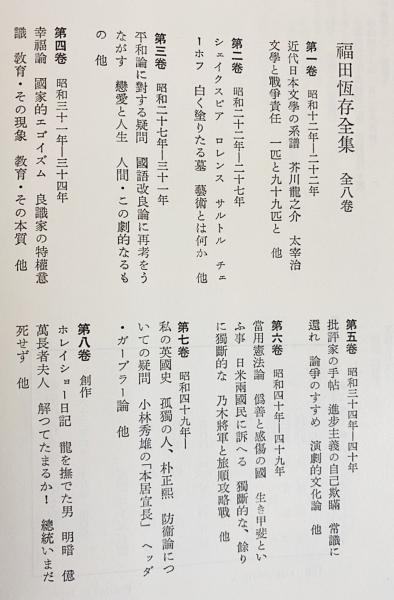 福田恆存全集 全八卷
第一卷 昭和十二年―二十二年
近代日本文學の系譜 芥川龍之介 太宰治
文學と戰爭責任 一匹と九十九匹と 他
第二卷 昭和二十二年―二十七年
シェイクスピア ロレンス サルトル チェ
ーホフ 白く塗りたる墓 藝術とは何か 他
第三卷 昭和二十七年―三十一年
平和論に對する疑問 國語改良論に再考をう
ながす 戀愛と人生 人間・この劇的なるも
の 他
第四卷 昭和三十一年―三十四年
幸福論 國家的エゴイズム 良識家の特權意
識 敎育・その現象 敎育・その本質 他
第五卷 昭和三十四年―四十年
批評家の手帖 進步主義の自己欺瞞 常識に
還れ 論爭のすすめ 演劇的文化論 他
第六卷 昭和四十年―四十九年
當用憲法論 僞善と感傷の國 生き甲斐とい
ふ事 日米兩國民に訴へる 獨斷的な、餘り
に獨斷的な 乃木將軍と旅順攻略戰 他
第七卷 昭和四十九年―
私の英國史 孤獨の人、朴正熙 防衞論につ
いての疑問 小林秀雄の「本居宣長」 ヘッダ
・ガーブラー論 他
第八卷 創作
ホレイショー日記 龍を撫でた男 明暗 億
萬長者夫人 解つてたまるか! 總統いまだ
死せず 他